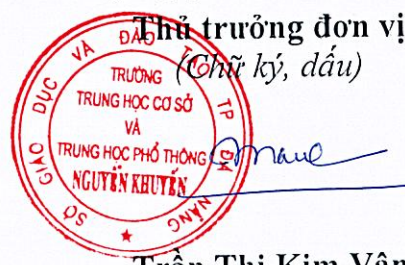 Thủ trưởng đơn vị
(Chữ ký, dấu)
SỞ GIÁO DỤC VÀ ĐÀO TẠO TP ĐÀ NẴNG
TRƯỜNG
TRUNG HỌC CƠ SỞ
VÀ
TRUNG HỌC PHỔ THÔNG
NGUYỄN KHUYẾN
Trần Thị Kim Vân